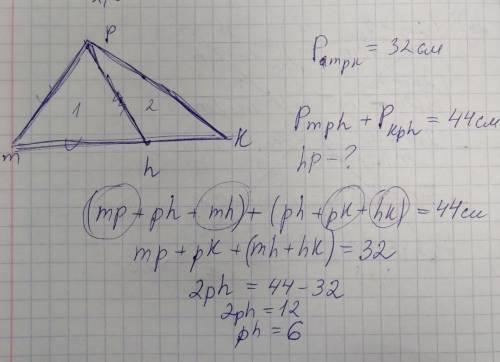 P
1
2
m
h
K
P mpk = 32 см
P mph + P kph = 44 см
hp - ?
(mp + ph + mh) + (ph + pK + hK) = 44 см
mp + pK + (mh + hK) = 32
2ph = 44 - 32
2ph = 12
ph = 6